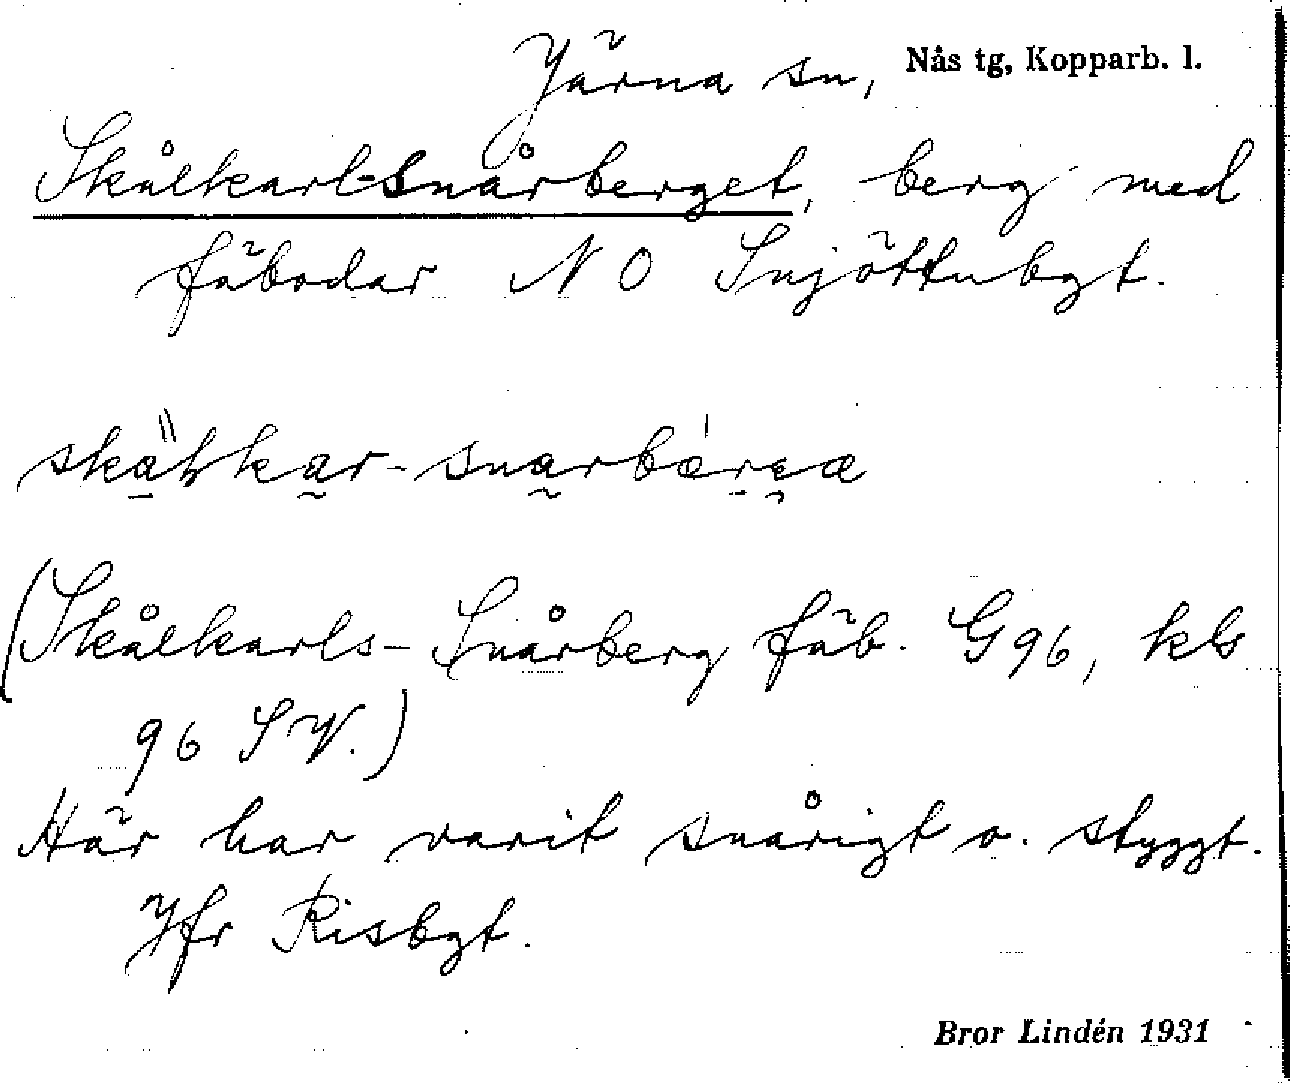 Järna sn, Nås tg, Kopparb. l.
Skålkarl-Snårberget, berg med
fäbodar N O Snjöttnbgt.
(Skålkarls-Snårberg fäb. G96, kls
96 SV.)
Här har varit snårigt o. styggt.
Jfr Risbgt.
Bror Lindén 1931